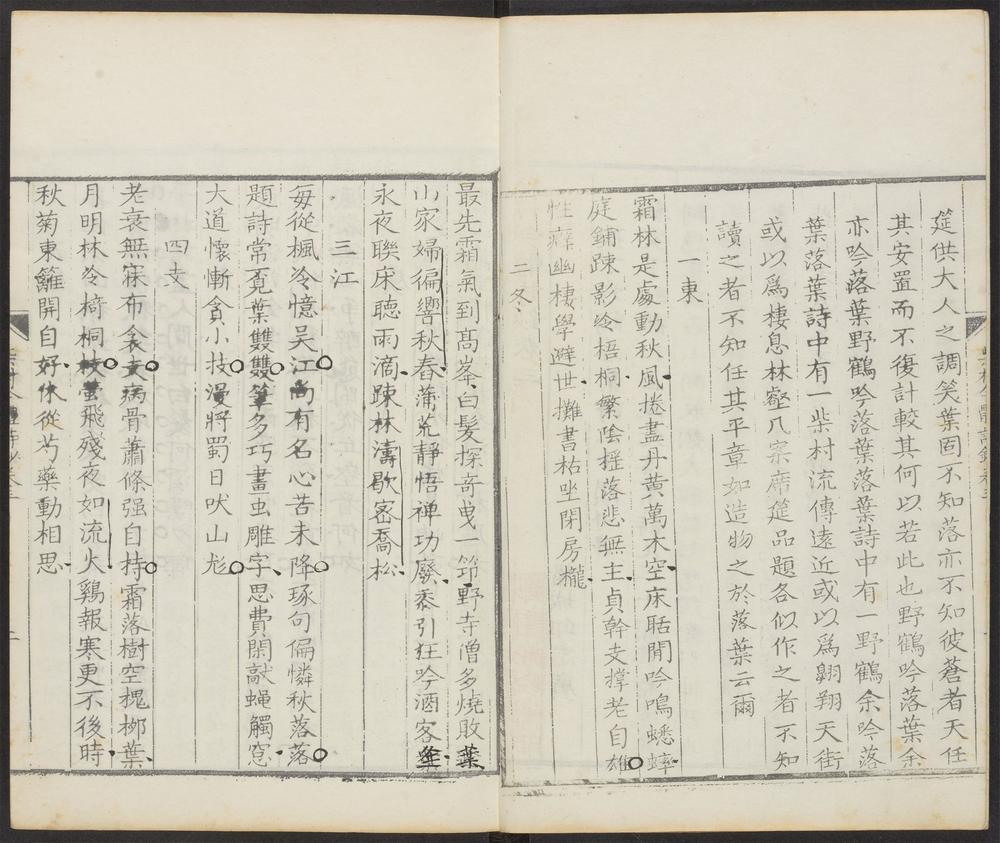 筵供大人之調笑葉固不知落亦不知彼蒼者天任
其安置而不復計較其何以若此也野鶴吟落葉余
亦吟落葉野鶴吟落葉落葉詩中有一野鶴余吟落
葉落葉詩中有一柴村流傳遠近或以爲翺翔天街
或以爲棲息林壑几案席筵品題各似作之者不知
讀之者不知任其平章如造物之於落葉云爾
一東
霜林是處動秋風捲盡丹黄萬木空床聒閒吟鳴蟋蟀
庭鋪踈影冷梧桐繁陰摇落悲無主貞幹支撑老自雄
性癖幽棲學避世攤書枯坐閉房櫳
二冬
最先霜氣到髙峯白髪探奇曵一笻野寺僧多燒敗葉
山家婦徧響秋舂蒲荒静悟禅功廢黍引狂吟酒客
永夜聯床聽雨滴踈林濤歇宻喬松
三江
每從楓冷憶吴江尚有名心苦未降琢句偏憐秋落落
題詩常覔葉雙雙筆多巧畫虫雕字思費閒敲蝇觸窓
大道懷慚貪小技漫將蜀日吠山尨
四支
老衰無寐布衾支病骨蕭條强自持霜落樹空槐栁葉
月明林冷椅桐枝螢飛殘夜如流火鷄報寒更不後時
秋菊東籬開自好休從芍藥動相思